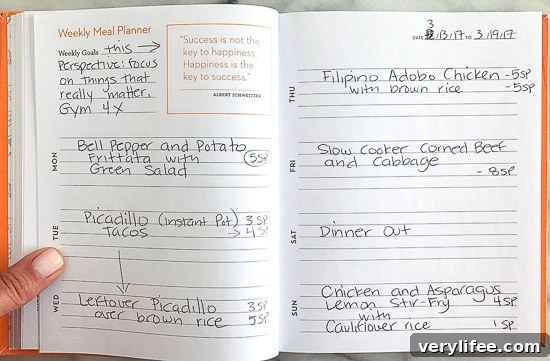 Weekly Meal Planner
Weekly Goals this →
Perspective: focus
on things that
really matter.
Gym 4x
"Success is not the
key to happiness.
Happiness is the
key to success."
ALBERT SCHWEITZER
MON
Bell Pepper and Potato
Frittata with 5SP
Green Salad
TUE
Picadillo (instant Pot) 3SP
tacos → 4SP
WED
Leftover Picadillo 3SP
over brown rice 5SP
DATE 3/13/17 TO 3/19/17
THU
Filipino Adobo Chicken - 5SP
with brown rice - 5SP
FRI
Slow Cooker Corned Beef
and Cabbage
- 8SP
SAT
Dinner Out
SUN
Chicken and Asparagus
Lemon Stir-Fry 4SP
with
Cauliflower rice 1SP
verylifee.com